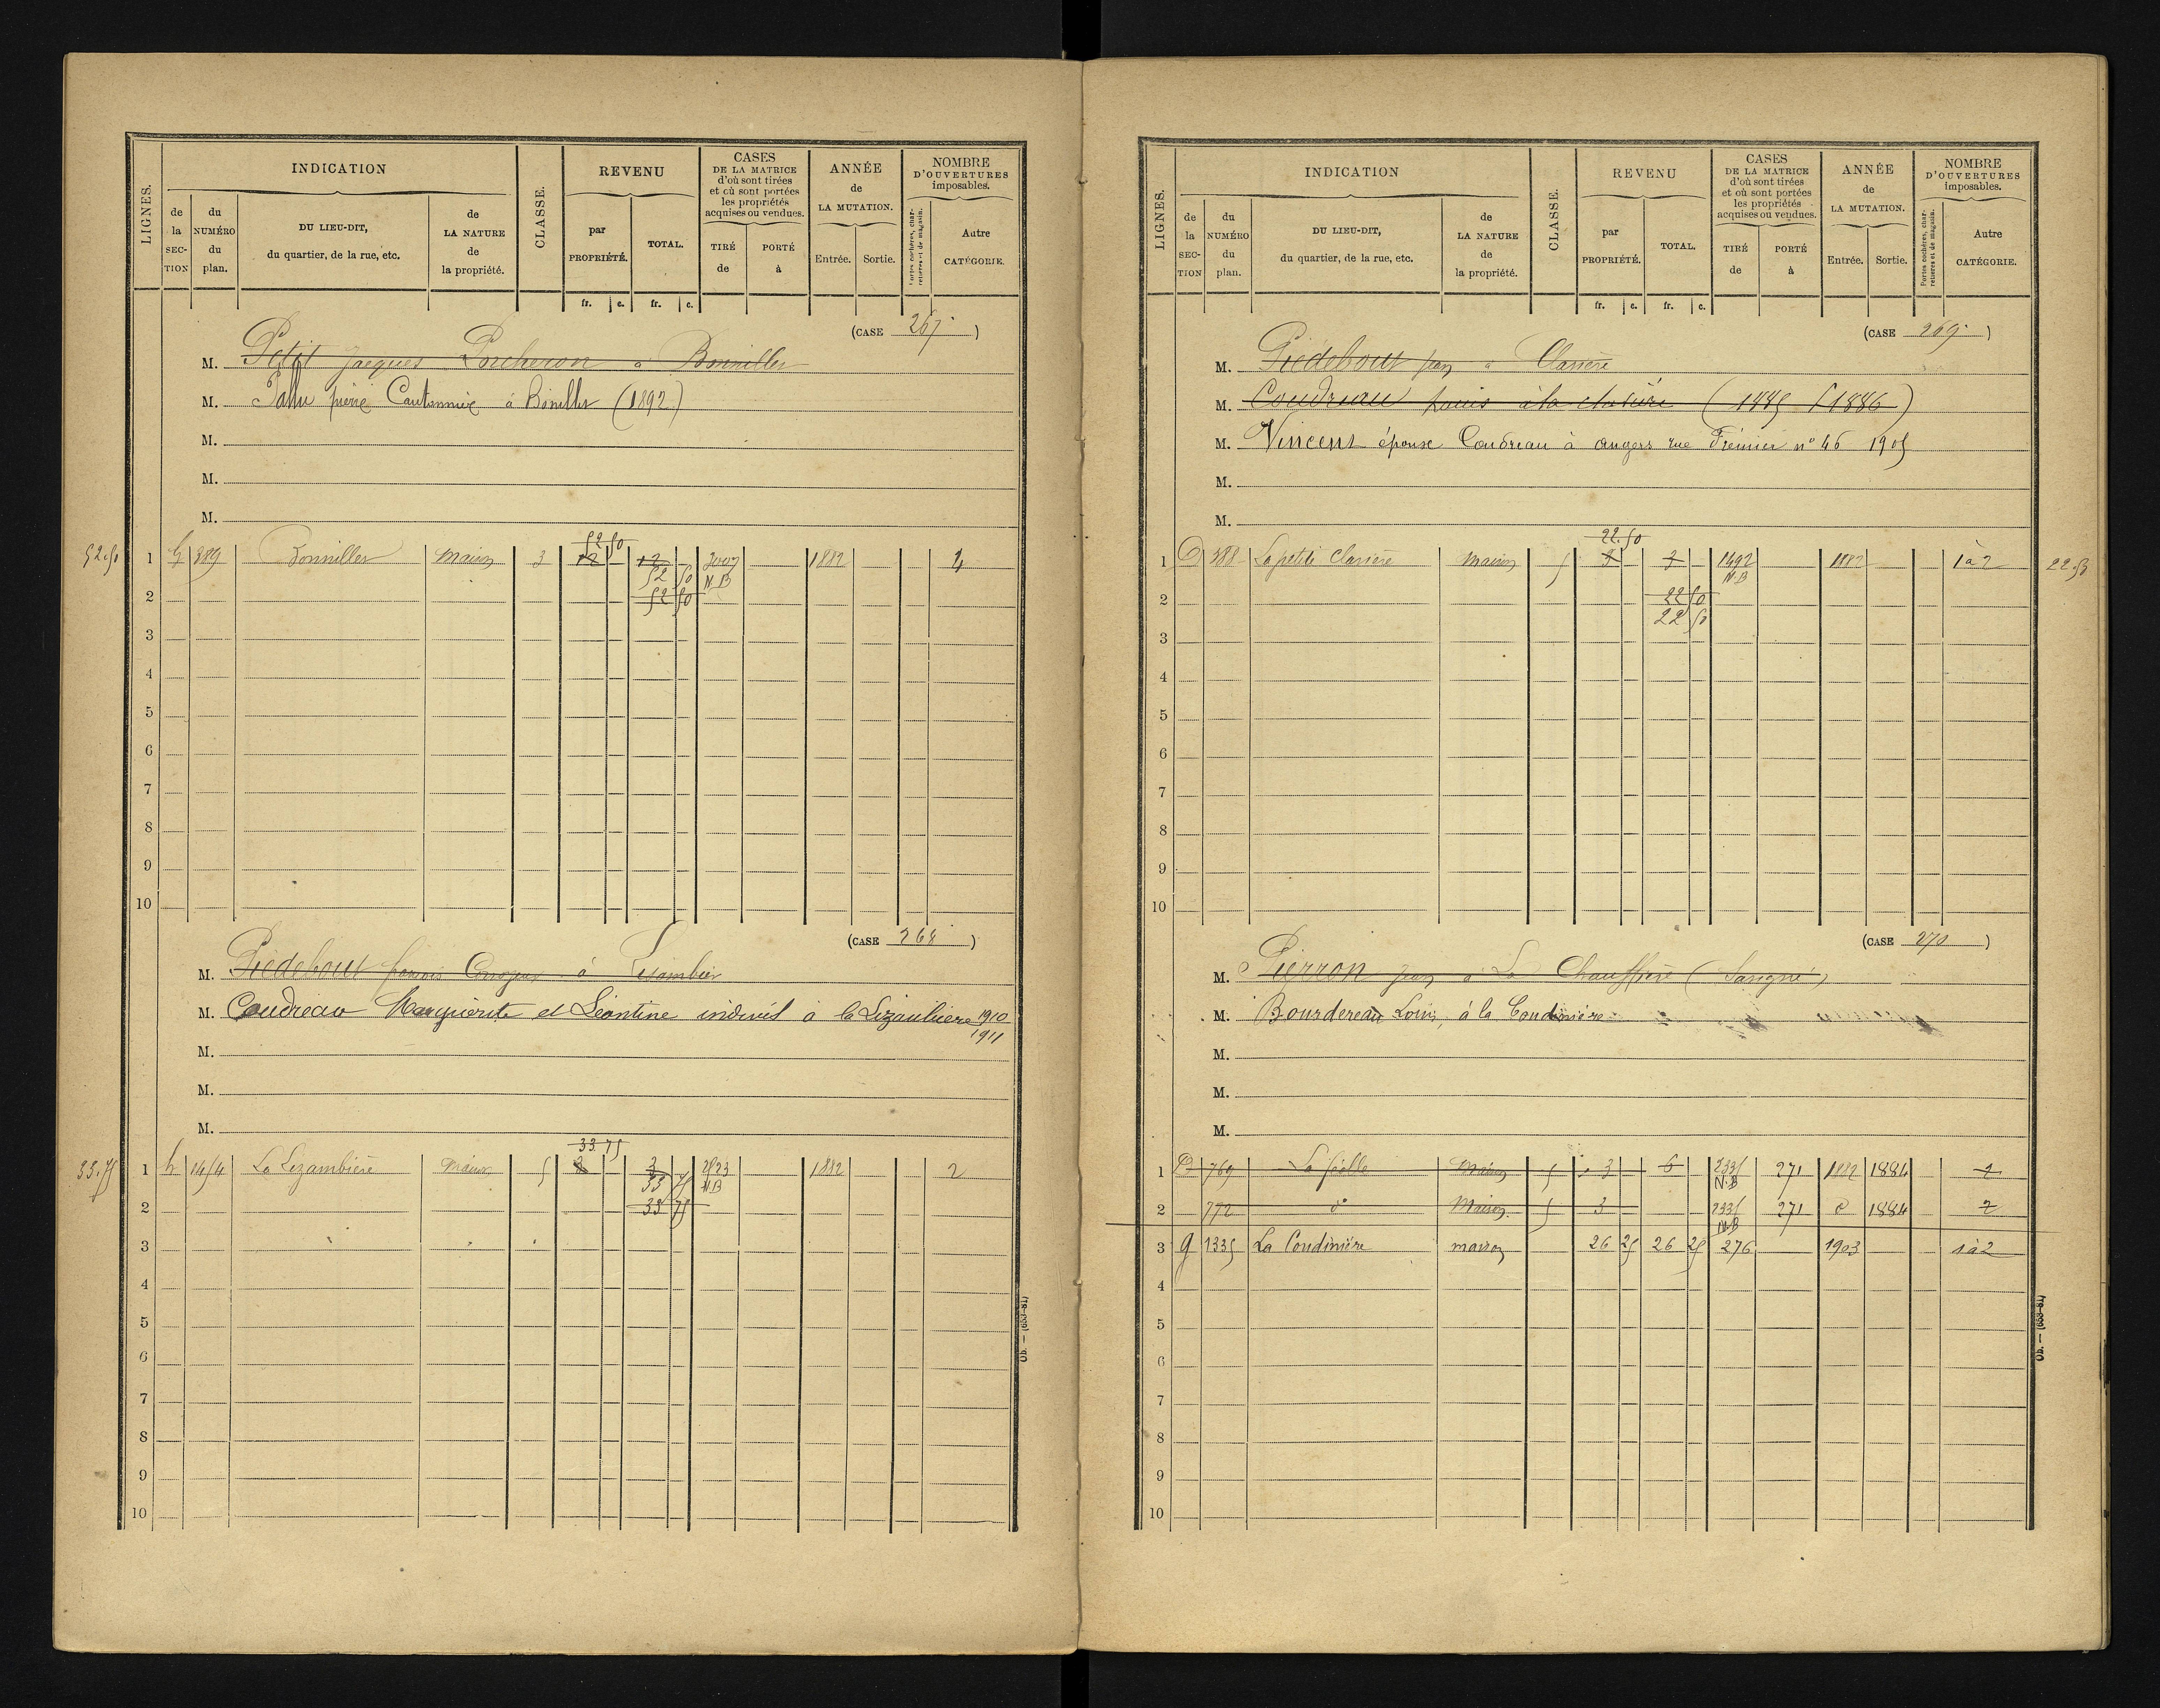 LIGNES.
INDICATION
de la SEC-TION
du NUMÉRO du plan.
DU LIEU-DIT, du quartier, de la rue, etc.
de LA NATURE de la propriété.
CLASSE.
REVENU
par PROPRIÉTÉ.
TOTAL.
fr. c. fr. c.
CASES DE LA MATRICE d'où sont tirées et où sont portées les propriétés acquises ou vendues.
TIRÉ de
PORTÉ à
ANNÉE de LA MUTATION.
Entrée. Sortie.
NOMBRE D'OUVERTURES imposables.
Portes cochères, charretières et de magasin.
Autre CATÉGORIE.
(CASE 267)
M. Petit Jacques Porcheron à Bonniller
M. Pallu pierre Cantonnier à Boniller (1892)
M.
M.
M.
52.50
52 50
1 G 389 Bonniller maison 3 12 12 2007 1882 4
52 50 N.B
2 52 50
3
4
5
6
7
8
9
10
(CASE 268)
M. Piedebout françois à
M. Coudreau Marguerite et Léontine indivis à la Lizambiere 1910
1911
M.
M.
M.
33.75
33 75
1 h 1454 La Lezambière maison 5 3 3 2523 1882 2
33 75 N.B
2 33 75
3
4
5
6
7
8
9
10
Ob. — (683-81)
LIGNES.
INDICATION
de la SEC-TION
du NUMÉRO du plan.
DU LIEU-DIT, du quartier, de la rue, etc.
de LA NATURE de la propriété.
CLASSE.
REVENU
par PROPRIÉTÉ.
TOTAL.
fr. c. fr. c.
CASES DE LA MATRICE d'où sont tirées et où sont portées les propriétés acquises ou vendues.
TIRÉ de
PORTÉ à
ANNÉE de LA MUTATION.
Entrée. Sortie.
NOMBRE D'OUVERTURES imposables.
Portes cochères, charretières et de magasin.
Autre CATÉGORIE.
(CASE 269)
M. Piedebout jean à Clasière
M. Coudreau à la clasière (1885 1886)
M. Vincent épouse Coudreau à angers rue Fremier n° 46 1905
M.
M.
22.50
1 D 488 La petite Clasière maison 5 3 3 1492 1882 1 à 2 22.50
N.B
2 22 50
22 50
3
4
5
6
7
8
9
10
(CASE 270)
M. Pierron jean à La Chauffière (Savigné)
M. Bourdereau Louis, à la Coudinière
M.
M.
M.
1 D 769 maison 5 3 6 2335 271 1882 1884 2
N.B
2 772 d° Maison 5 3 2335 271 d 1884 2
N.B
3 g 1335 La Coudinière maison 26 25 26 25 276 1903 1 à 2
4
5
6
7
8
9
10
Ob. — (683-81)